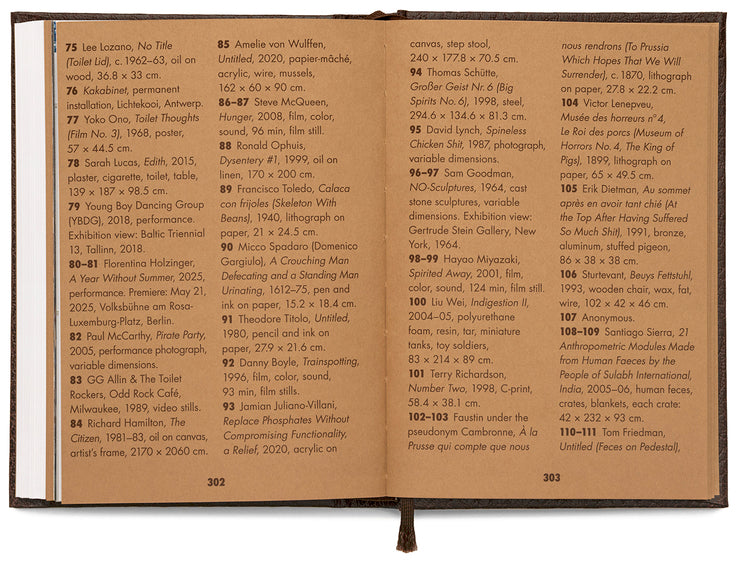 75 Lee Lozano, No Title
(Toilet Lid), c. 1962–63, oil on
wood, 36.8 × 33 cm.
76 Kakabinet, permanent
installation, Lichtekooi, Antwerp.
77 Yoko Ono, Toilet Thoughts
(Film No. 3), 1968, poster,
57 × 44.5 cm.
78 Sarah Lucas, Edith, 2015,
plaster, cigarette, toilet, table,
139 × 187 × 98.5 cm.
79 Young Boy Dancing Group
(YBDG), 2018, performance.
Exhibition view: Baltic Triennial
13, Tallinn, 2018.
80–81 Florentina Holzinger,
A Year Without Summer, 2025,
performance. Premiere: May 21,
2025, Volksbühne am Rosa-
Luxemburg-Platz, Berlin.
82 Paul McCarthy, Pirate Party,
2005, performance photograph,
variable dimensions.
83 GG Allin & The Toilet
Rockers, Odd Rock Café,
Milwaukee, 1989, video stills.
84 Richard Hamilton, The
Citizen, 1981–83, oil on canvas,
artist's frame, 2170 × 2060 cm.
85 Amelie von Wulffen,
Untitled, 2020, papier-mâché,
acrylic, wire, mussels,
162 × 60 × 90 cm.
86–87 Steve McQueen,
Hunger, 2008, film, color,
sound, 96 min, film still.
88 Ronald Ophuis,
Dysentery #1, 1999, oil on
linen, 170 × 200 cm.
89 Francisco Toledo, Calaca
con frijoles (Skeleton With
Beans), 1940, lithograph on
paper, 21 × 24.5 cm.
90 Micco Spadaro (Domenico
Gargiulo), A Crouching Man
Defecating and a Standing Man
Urinating, 1612–75, pen and
ink on paper, 15.2 × 18.4 cm.
91 Theodore Titolo, Untitled,
1980, pencil and ink on
paper, 27.9 × 21.6 cm.
92 Danny Boyle, Trainspotting,
1996, film, color, sound,
93 min, film stills.
93 Jamian Juliano-Villani,
Replace Phosphates Without
Compromising Functionality,
a Relief, 2020, acrylic on
302
canvas, step stool,
240 × 177.8 × 70.5 cm.
94 Thomas Schütte,
Großer Geist Nr. 6 (Big
Spirits No. 6), 1998, steel,
294.6 × 134.6 × 81.3 cm.
95 David Lynch, Spineless
Chicken Shit, 1987, photograph,
variable dimensions.
96–97 Sam Goodman,
NO-Sculptures, 1964, cast
stone sculptures, variable
dimensions. Exhibition view:
Gertrude Stein Gallery, New
York, 1964.
98–99 Hayao Miyazaki,
Spirited Away, 2001, film,
color, sound, 124 min, film still.
100 Liu Wei, Indigestion II,
2004–05, polyurethane
foam, resin, tar, miniature
tanks, toy soldiers,
83 × 214 × 89 cm.
101 Terry Richardson,
Number Two, 1998, C-print,
58.4 × 38.1 cm.
102–103 Faustin under the
pseudonym Cambronne, À la
Prusse qui compte que nous
nous rendrons (To Prussia
Which Hopes That We Will
Surrender), c. 1870, lithograph
on paper, 27.8 × 22.2 cm.
104 Victor Lenepveu,
Musée des horreurs n°4,
Le Roi des porcs (Museum of
Horrors No. 4, The King of
Pigs), 1899, lithograph on
paper, 65 × 49.5 cm.
105 Erik Dietman, Au sommet
après en avoir tant chié (At
the Top After Having Suffered
So Much Shit), 1991, bronze,
aluminum, stuffed pigeon,
86 × 38 × 38 cm.
106 Sturtevant, Beuys Fettstuhl,
1993, wooden chair, wax, fat,
wire, 102 × 42 × 46 cm.
107 Anonymous.
108–109 Santiago Sierra, 21
Anthropometric Modules Made
from Human Faeces by the
People of Sulabh International,
India, 2005–06, human feces,
crates, blankets, each crate:
42 × 232 × 93 cm.
110–111 Tom Friedman,
Untitled (Feces on Pedestal),
303